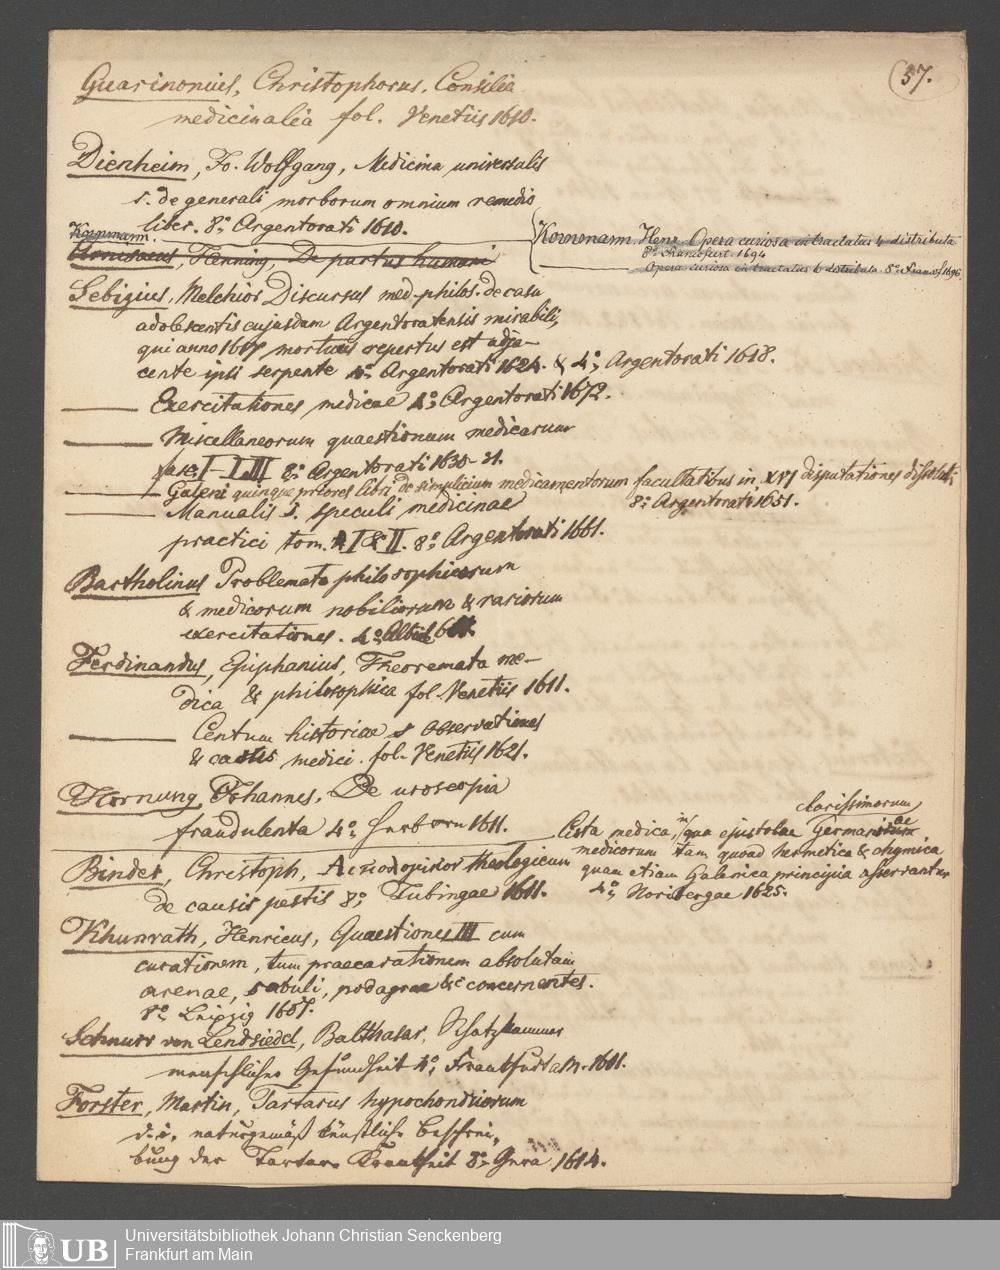 57.
Guarinonius, Christophorus, Consilia
medicinalia fol. Venetiis 1610.
Dienheim, Jo. Wolfgang, Medicina universalis
s. de generali morborum omnium remedio
liber. 8o Argentorati 1610.
Kornmann.
Arnisaeus, Henning, De partus humani
Kornmann, Henr. Opera curiosa in tractatus 4 distributa
8o Francofurt. 1694
Opera curiosa in tractatus 6 distributa. 8o Francof 1696.
Sebizius, Melchior Discursus med.-philos. de casu
adolescentis cujusdam Argentoratensis mirabili,
qui anno 1617 mortuus repertus est adja-
cente ipsi serpente 4o Argentorati 1624. & 4o, Argentorati 1618.
——— Exercitationes medicae 4o, Argentorati 1672.
——— Miscellaneorum quaestionum medicarum
fasc. I - LIII 8o Argentorati 1630-31.
——— Galeni quinque priores libri de simplicium medicamentorum facultatibus in XVI disputationes dissoluti
8o Argentorati 1651.
——— Manualis s. speculi medicinae
practici tom. I & II. 8o Argentorati 1661.
Bartholinus Problemata philosophicorum
& medicorum nobiliorum & rariorum
exercitationes. 4o
Ferdinandus, Epiphanius, Theoremata me-
dica & philosophica fol. Venetiis 1611.
——— Centum historiae s observationes
& casus medici. fol. Venetiis 1621.
Hornung Johannes, De uroscopia
fraudulenta 4o, Herborn 1611.
Cista medica, in qua epistolae clarissimorum Germaniae
medicorum tam quoad hermetica & chymica
quam etiam Galenica principia asservantur
4o, Noribergae 1625.
Binder, Christoph, theologicum
de causis pestis 8o Tubingae 1611.
Khunrath, Henricus, Quaestiones III cum
curationem, tum praecavationem absolutam
arenae, sabuli, podagrae &c concernentes.
8o Leipzig 1607.
Schnurr von Lendsiedel, Balthasar, Schatzkammer
menschlicher Gesundheit 4o, Frankfurt a M. 1611.
Forster, Martin, Tartarus hypochondriorum
d. i. naturgemäß künstliche Beschrei-
bung der Tartar Krankheit 8o Gera 1614.
UB
Universitätsbibliothek Johann Christian Senckenberg
Frankfurt am Main